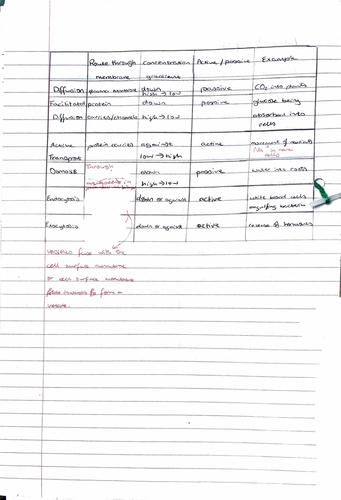 Route through Concentration Active / passive Example
membrane gradient
Diffusion plasma membrane down high → low passive CO₂ into plants
Facilitated protein down passive glucose being
Diffusion carries/channels high → low absorbed into cells
Active protein carries against active movement of
Transport low → high
Osmosis through down passive water into roots
high → low
Endocytosis down or against active white blood cells
engulfing bacteria
Exocytosis down or against active release of hormones
vesicles fuse with the
cell surface membrane
or cell surface membrane
folds inwards to form a
vesicle